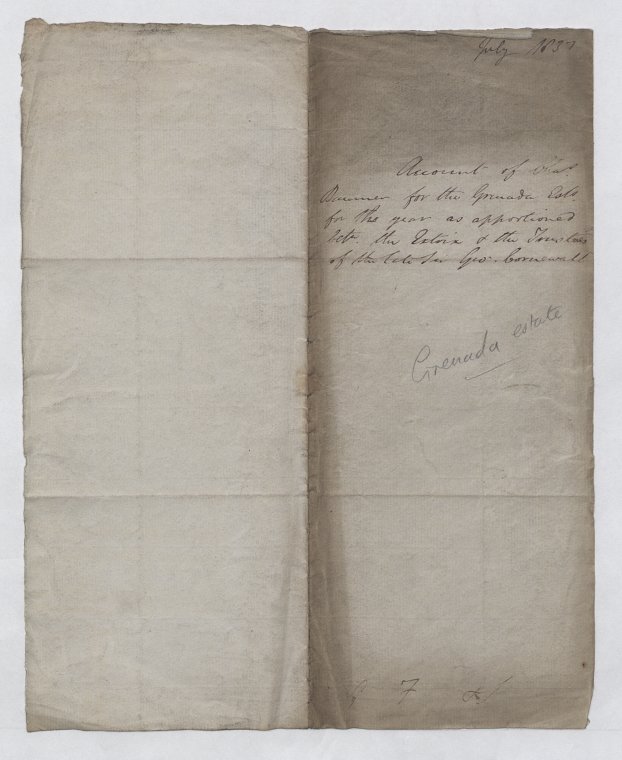 July 1837
Account of
for the Grenada Ests
for the year as apportioned
betn. the Extrix & the Trustees
of the late Sir Geo. Cornewall
Grenada estate
7